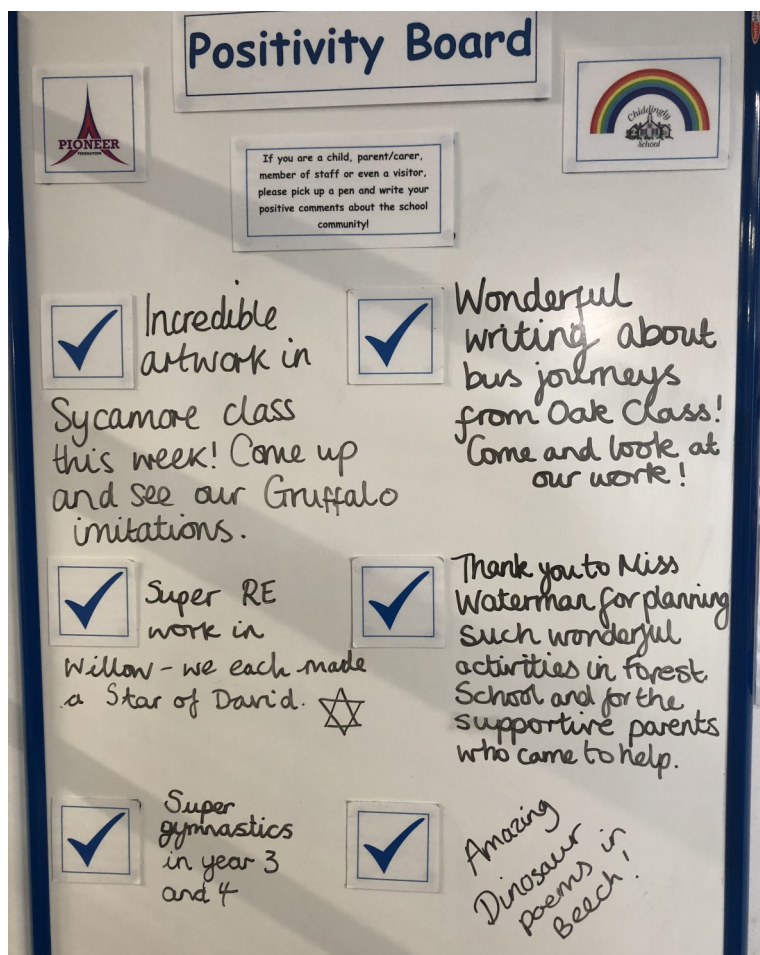 Positivity Board
PIONEER
FEDERATION
Chiddingly
School
If you are a child, parent/carer,
member of staff or even a visitor,
please pick up a pen and write your
positive comments about the school
community!
Incredible
artwork in
Sycamore class
this week! Come up
and see our Gruffalo
imitations.
Wonderful
writing about
bus journeys
from Oak Class!
Come and look at
our work!
Super RE
work in
Willow - we each made
a Star of David.
Thank you to Miss
Waterman for planning
such wonderful
activities in Forest
School and for the
supportive parents
who came to help.
Super
gymnastics
in year 3
and 4
Amazing
Dinosaur
poems in
Beech!